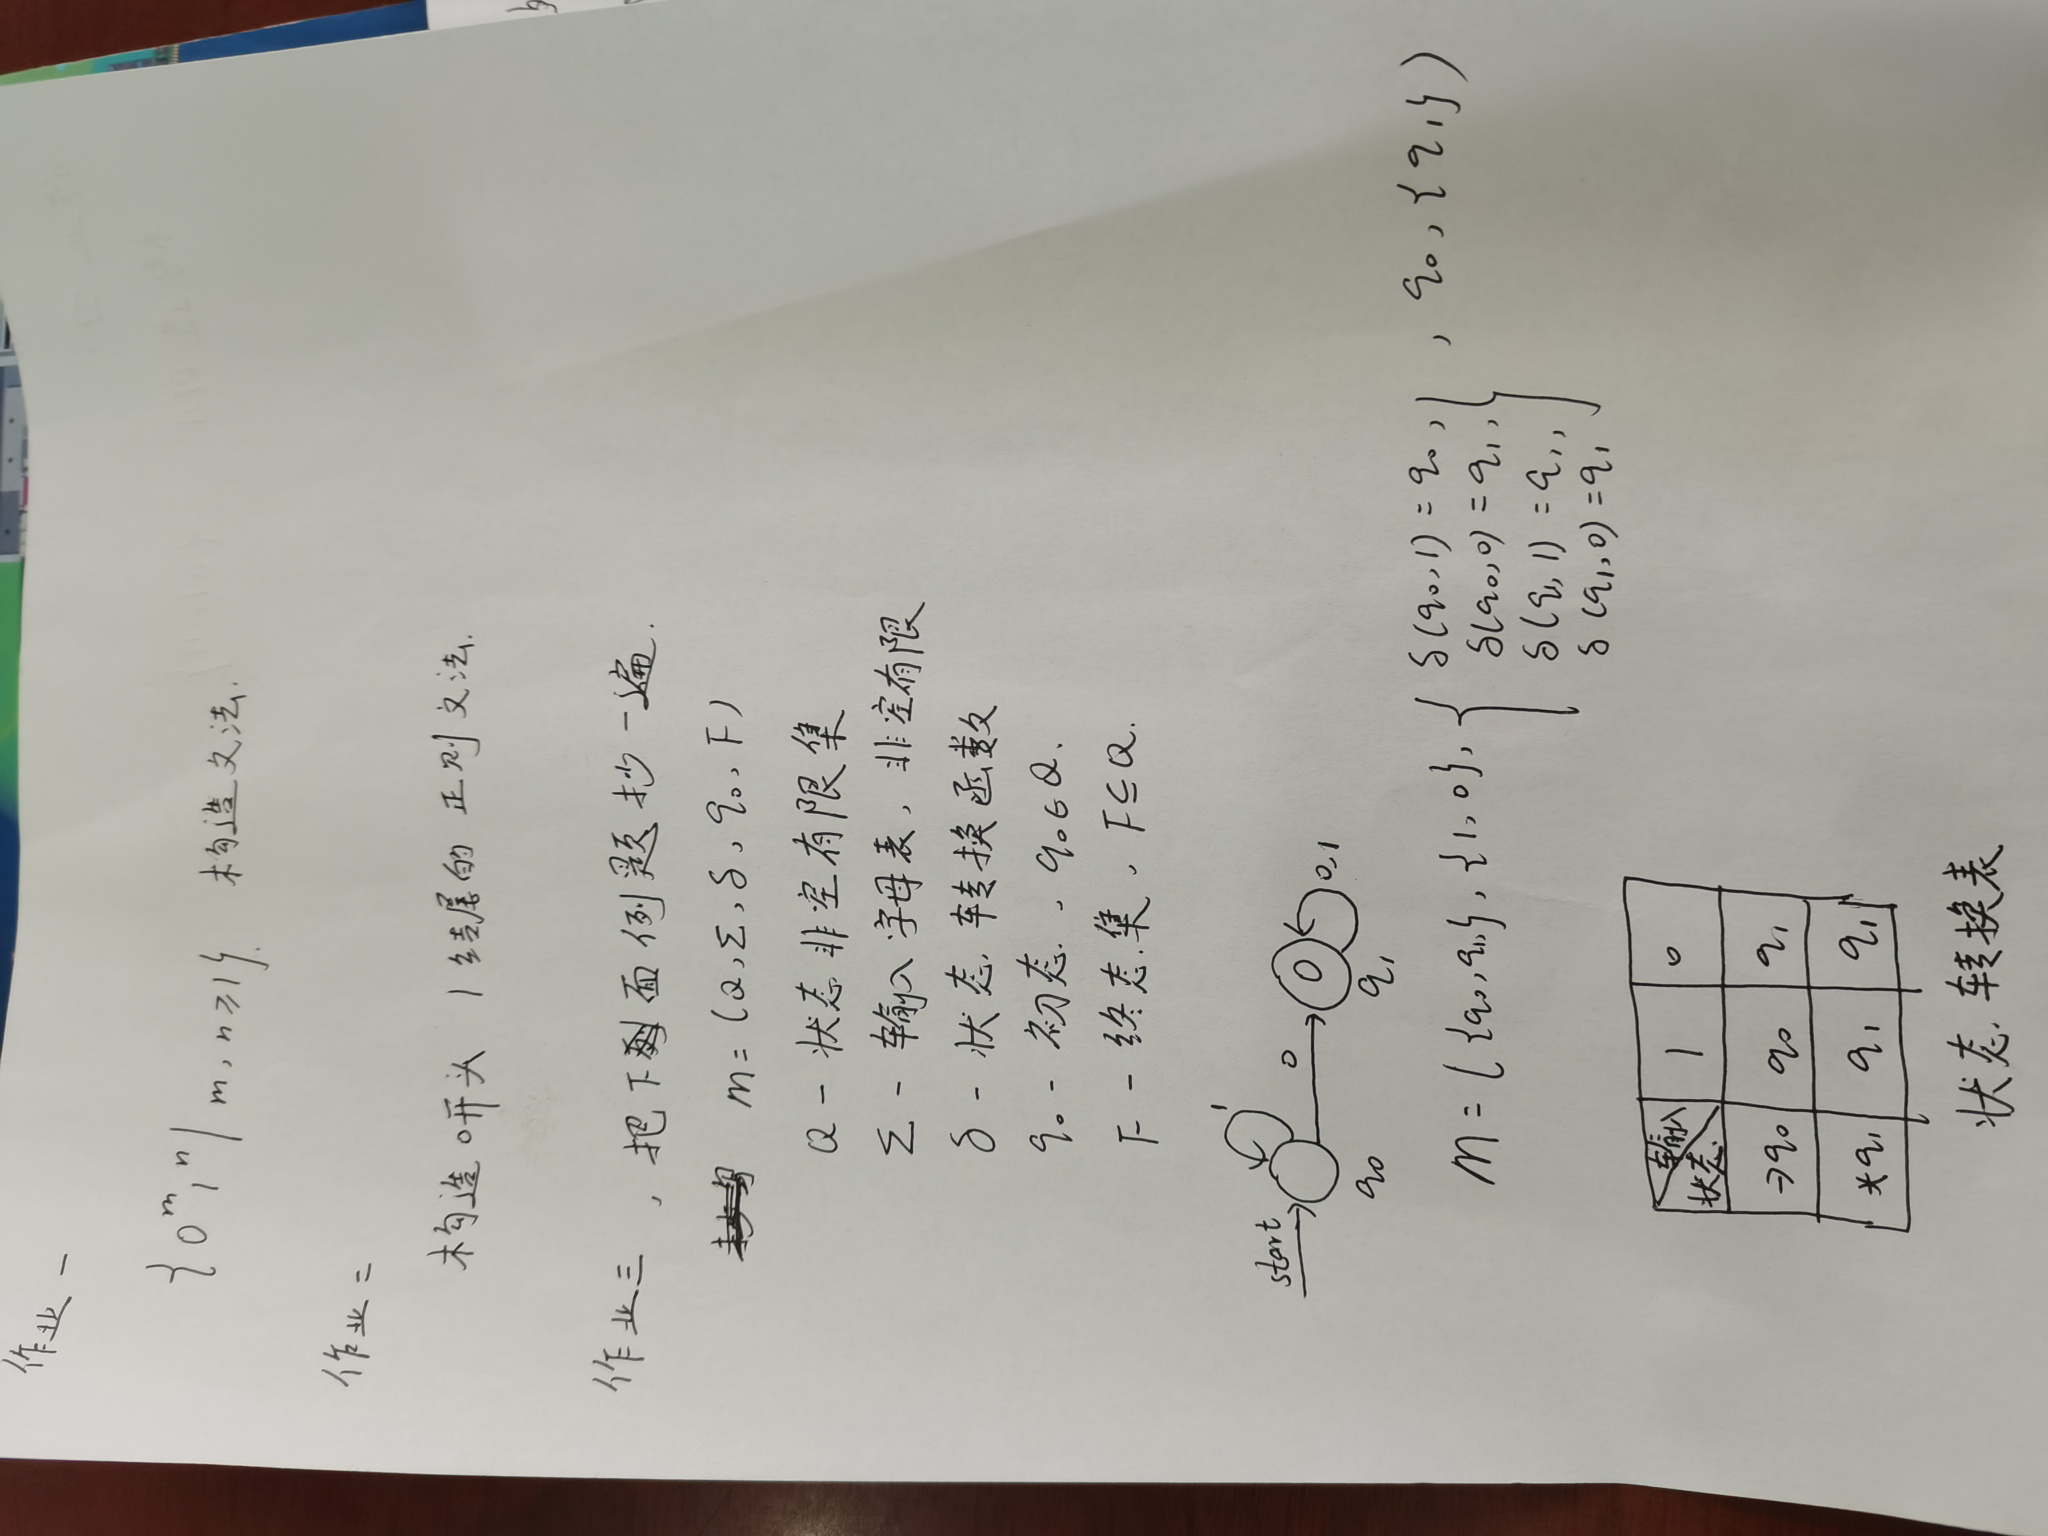 作业一
{0ᵐ1ⁿ | m,n≥1}. 构造文法.
作业二
构造0开头 1结尾的正则文法.
作业三,把下面例题抄一遍.
M=(Q,Σ,δ,q₀,F)
Q-状态非空有限集
Σ-输入字母表,非空有限
δ-状态转换函数
q₀-初态,q₀∈Q.
F-终态集,F⊆Q.
start 1 0 0,1
q₀ q₁
M=({q₀,q₁},{1,0},{δ(q₀,1)=q₀, },q₀,{q₁})
δ(q₀,0)=q₁,
δ(q₁,1)=q₁,
δ(q₁,0)=q₁
输入 状态 1 0
→q₀ q₀ q₁
*q₁ q₁ q₁
状态转换表